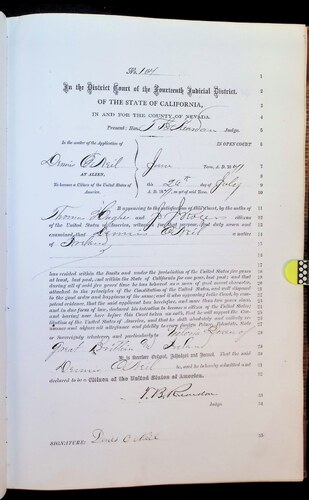 No.
1
In the District Court of the Fourteenth Judicial District,
2
3
OF THE STATE OF CALIFORNIA,
4
IN AND FOR THE COUNTY OF NEVADA.
5
Present: Hon. Judge.
6
In the matter of the Application of
IN OPEN COURT
Dennis O'Neil
June Term, A. D. 18
7
AN ALIEN,
8
To become a Citizen of the United States of
this day of July
9
America.
A. D. 18 , as yet of said Term.
10
It appearing to the satisfaction of this Court, by the oaths of
11
Thomas Hughes and citizens
12
of the United States of America, witnesses for that purpose, first duly sworn and
13
examined, that Dennis O'Neil a native
14
of Ireland
15
has resided within the limits and under the jurisdiction of the United States for
at least, last past, and within the State of California for one year, last past; and that
during all of said time he has behaved as a man of good moral character,
attached to the principles of the Constitution of the United States, and well disposed
to the good order and happiness of the same; and it also appearing to the Court, by com-
petent evidence, that the said applicant has heretofore, and more than two years since,
and in due form of law, declared his intention to become a citizen of the United States;
and having now here before this Court taken an oath, that he will support the Con-
stitution of the United States of America, and that he doth absolutely and entirely re-
nounce and abjure all allegiance and fidelity to every foreign Prince, Potentate, State
or Sovereignty whatever, and particularly to Victoria Queen of
Great Britain & Ireland
It is therefore Ordered, Adjudged and Decreed, That the said
Dennis O'Neil be, and he is hereby admitted and
declared to be a Citizen of the United States of America.
Judge.
SIGNATURE: Denis O Neil